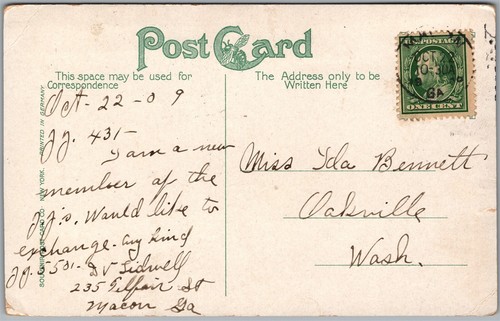 Post Card
This space may be used for
Correspondence
The Address only to be
Written Here
Oct- 22 - 09
JJ. 431-
I am a new
member of the
JJ's. Would like to
exchange. Any kind
JJ. 501- D V Tidwell
235 Telfair St
Macon Ga
Miss Ida Bennett
Oakville
Wash.
U.S. POSTAGE
ONE CENT
OCT
GA
SOUVENIR POST CARD CO. NEW YORK. PRINTED IN GERMANY.